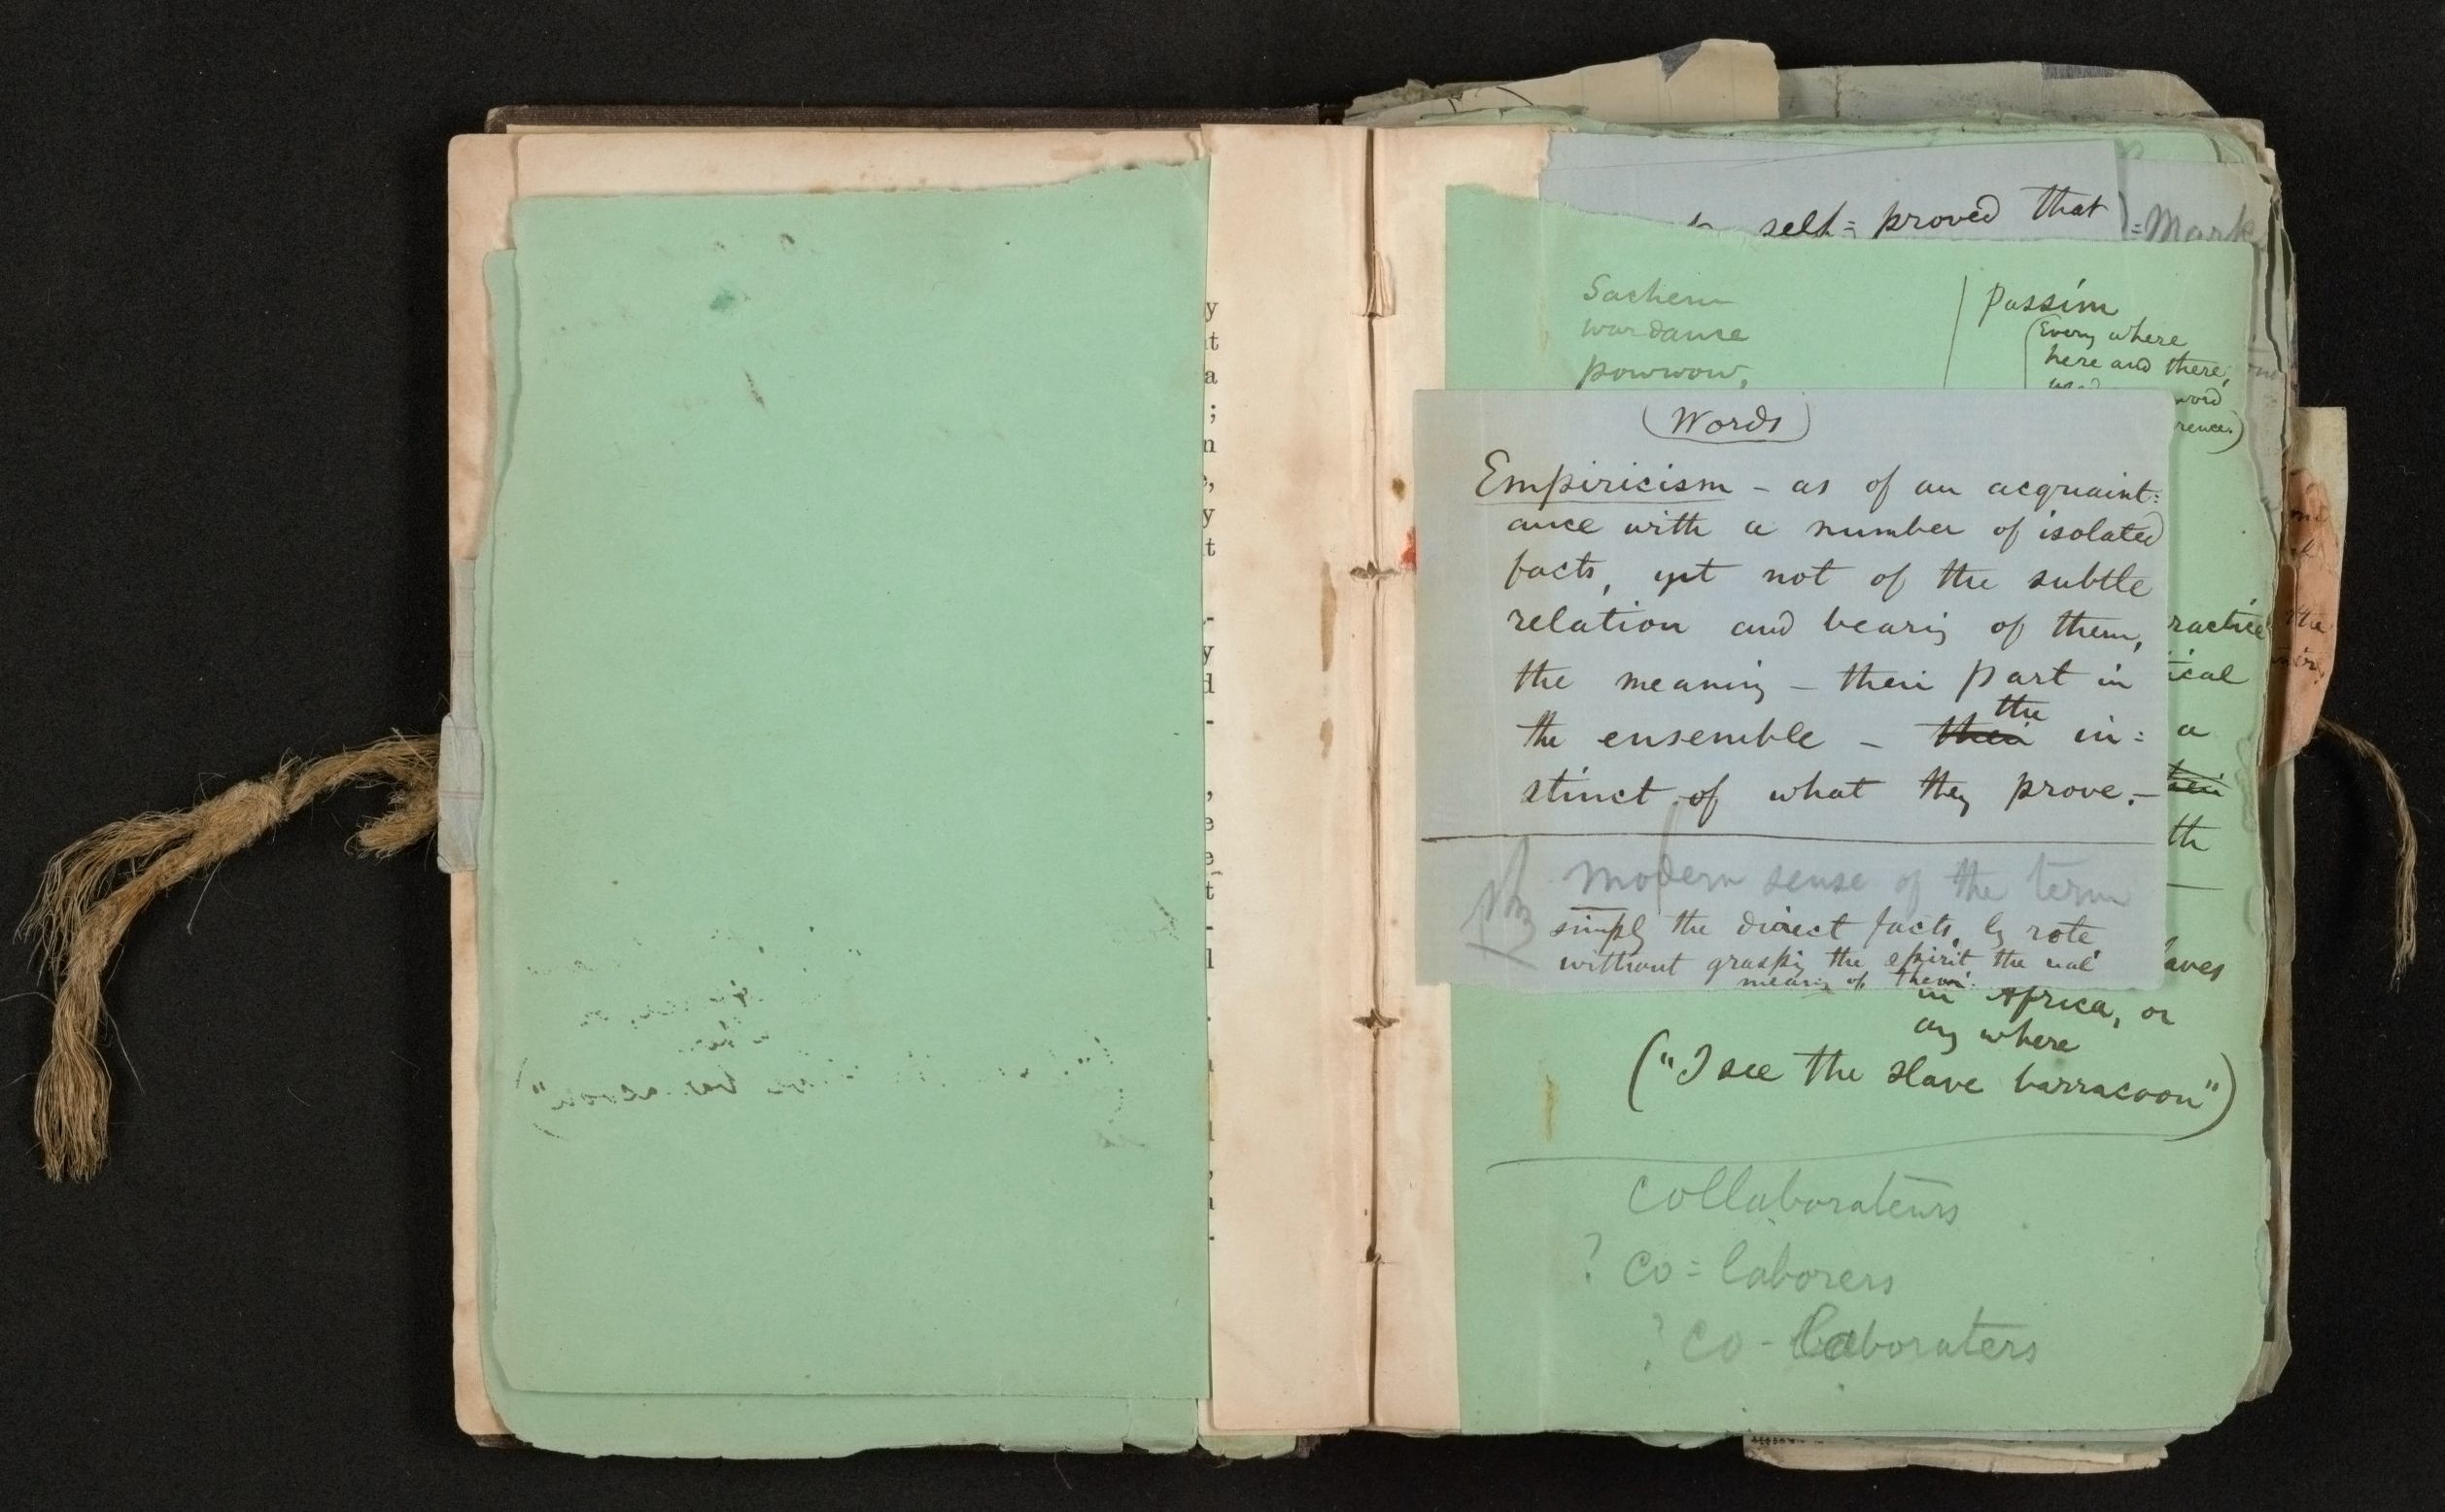 self= proved that
=Mark
Sachem
war dance
powwow,
Passim
(Every where
here and there,
word
rence.)
(Words)
Empiricism – as of an acquaint=
ance with a number of isolated
facts, yet not of the subtle
relation and bearing of them,
the meaning – their part in
the ensemble – their the in=
stinct of what they prove. –
modern sense of the term
simply the direct facts, by rote
without grasping the spirit the real
meaning of them.
ractice
tical
a
their
th
laves
in Africa, or
any where
("I see the slave barracoon")
collaborateurs
? co=laborers
? co-laboraters